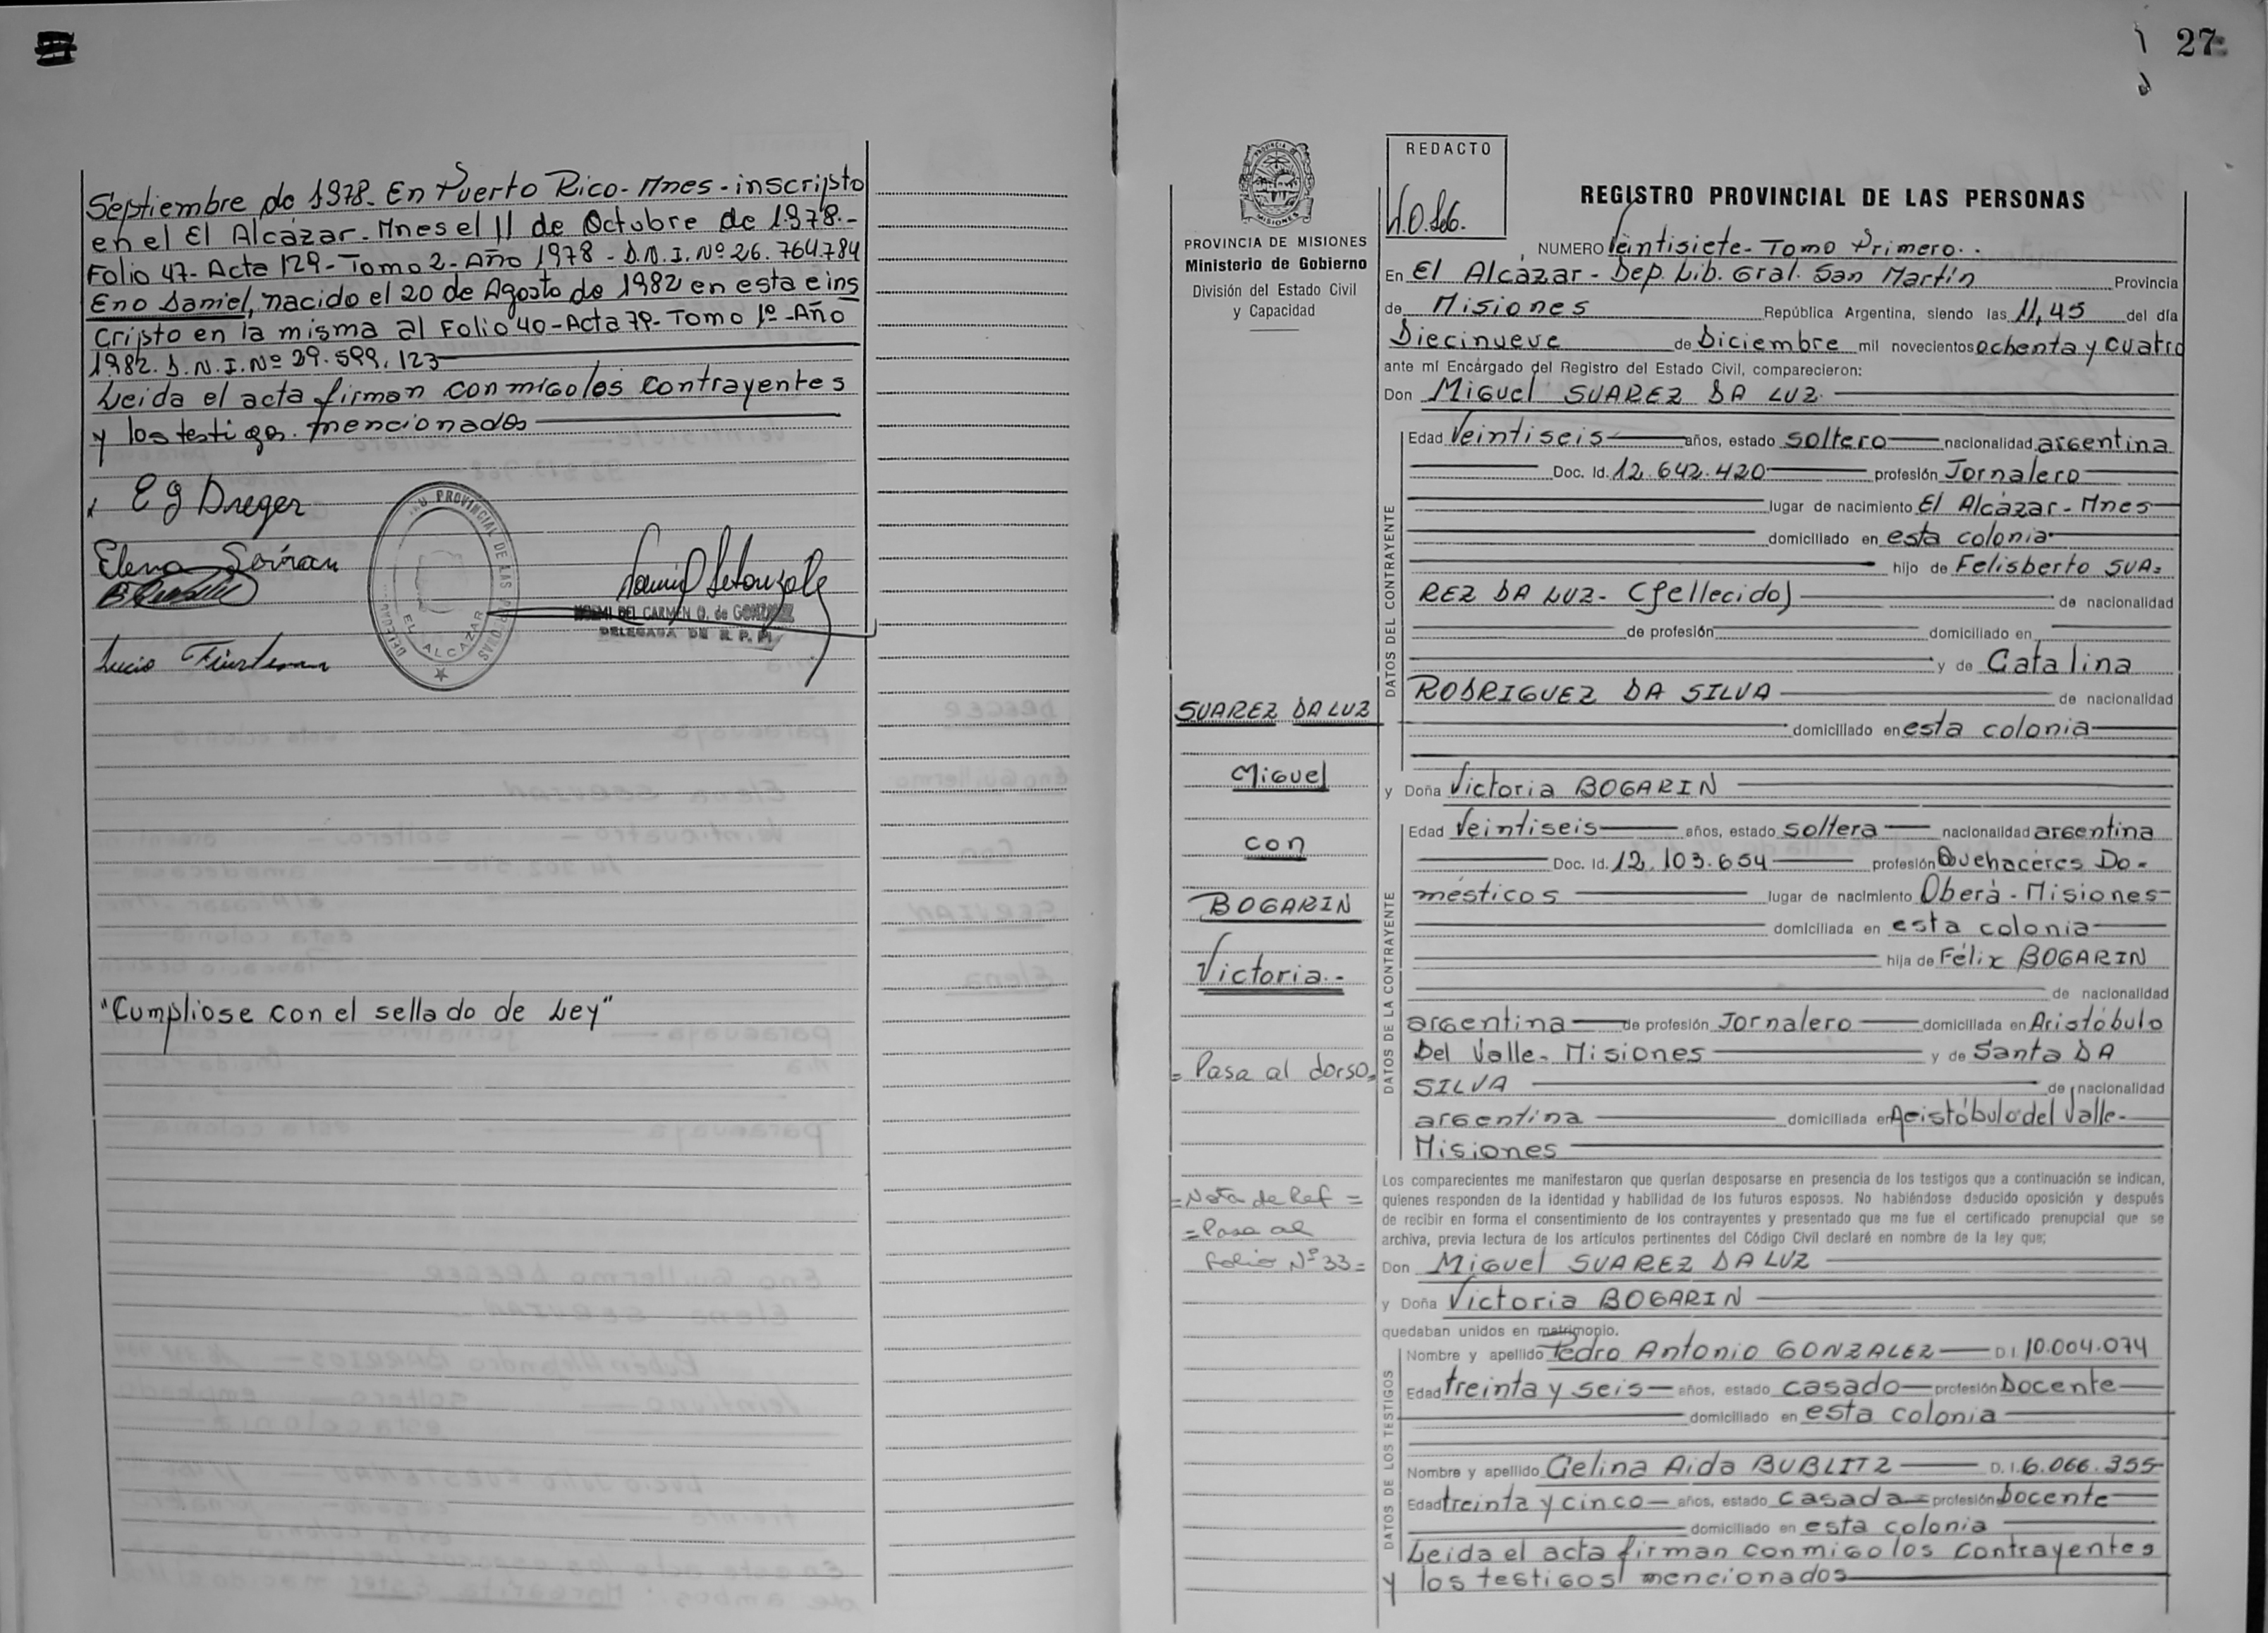 Septiembre de 1978. En Puerto Rico - Mnes - inscripto
en el El Alcázar - Mnes el 11 de Octubre de 1978.-
Folio 47 - Acta 129 - Tomo 2 - Año 1978 - D.N.I. Nº 26.764.784
Eno Daniel, nacido el 20 de Agosto de 1982 en esta e ins
cripto en la misma al Folio 40 - Acta 79 - Tomo 1º - Año
1982. D.N.I. Nº 29.599.123
Leida el acta firman conmigo los contrayentes
y los testigos mencionados
E G Dreger
Elena
Lucio
PROVINCIAL DE LAS PERSONAS
EL ALCAZAR
NOEMI DEL CARMEN O. de GONZALEZ
DELEGADA DE R. P. P.
"Cumpliose con el sellado de Ley"
27
PROVINCIA DE MISIONES
Ministerio de Gobierno
División del Estado Civil
y Capacidad
SUAREZ DA LUZ
Miguel
con
BOGARIN
Victoria.-
= Pasa al dorso =
= Nota de Ref =
= Pasa al
Folio Nº 33 =
REDACTO
REGISTRO PROVINCIAL DE LAS PERSONAS
NUMERO Veintisiete - Tomo Primero..
En El Alcázar - Dep. Lib. Gral. San Martín Provincia
de Misiones República Argentina, siendo las 11,45 del día
Diecinueve de Diciembre mil novecientos ochenta y cuatro
ante mí Encárgado del Registro del Estado Civil, comparecieron:
Don Miguel SUAREZ DA LUZ
DATOS DEL CONTRAYENTE
Edad Veintiseis años, estado soltero nacionalidad argentina
Doc. Id. 12.642.420 profesión Jornalero
lugar de nacimiento El Alcázar - Mnes
domiciliado en esta colonia
hijo de Felisberto SUA=
REZ DA LUZ - (fellecido) de nacionalidad
de profesión domiciliado en
y de Catalina
RODRIGUEZ DA SILVA de nacionalidad
domiciliado en esta colonia
y Doña Victoria BOGARIN
DATOS DE LA CONTRAYENTE
Edad Veintiseis años, estado soltera nacionalidad argentina
Doc. Id. 12.103.654 profesión Quehaceres Do-
mésticos lugar de nacimiento Oberá - Misiones
domiciliada en esta colonia
hija de Félix BOGARIN
de nacionalidad
argentina de profesión Jornalero domiciliada en Aristóbulo
Del Valle - Misiones y de Santa DA
SILVA de nacionalidad
argentina domiciliada en Aristóbulo del Valle-
Misiones
Los comparecientes me manifestaron que querían desposarse en presencia de los testigos que a continuación se indican,
quienes responden de la identidad y habilidad de los futuros esposos. No habiéndose deducido oposición y después
de recibir en forma el consentimiento de los contrayentes y presentado que me fue el certificado prenupcial que se
archiva, previa lectura de los artículos pertinentes del Código Civil declaré en nombre de la ley que;
Don Miguel SUAREZ DA LUZ
y Doña Victoria BOGARIN
quedaban unidos en matrimonio.
DATOS DE LOS TESTIGOS
Nombre y apellido Pedro Antonio GONZALEZ D.I. 10.004.074
Edad treinta y seis años, estado casado profesión Docente
domiciliado en esta colonia
Nombre y apellido Celina Aida BUBLITZ D.I. 6.066.355
Edad treinta y cinco años, estado casada profesión Docente
domiciliado en esta colonia
Leida el acta firman conmigo los contrayentes
y los testigos mencionados